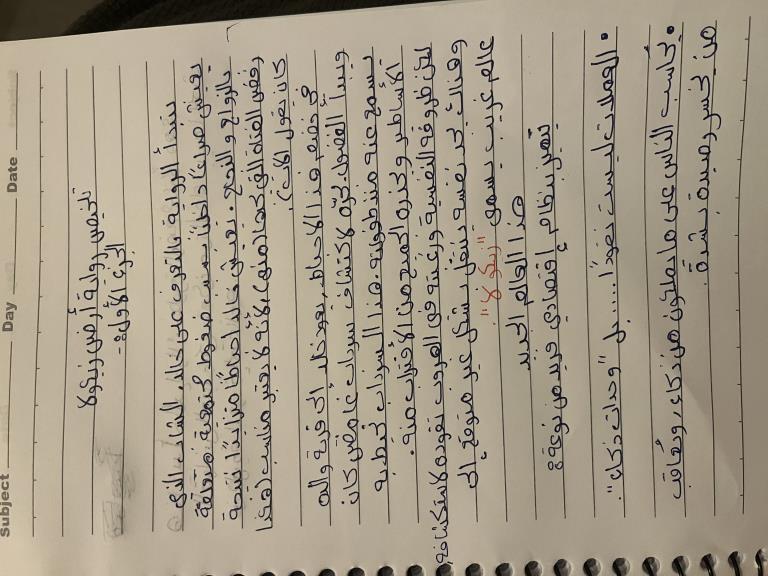 Subject
Day
Date
تلخيص رواية أرض زيكولا
الجزء الأول :-
تبدأ الرواية بالتعرف على خالد الشاب الذي
يعيش صراعًا داخليًا بسبب ضغوط مجتمعية متعلقة
بالزواج والنجاح. يعيش خالد احباطًا متزايدًا نتيجة
رفض الفتاة التي كما (منى)، لأنه لا يعتبر مناسب (هكذا
كان يقول الأب)
في خضم هذا الإحباط، يعود خالد إلى قريته والده
ويبدأ الفضول يجره لاكتشاف سرداب غامض كان
يسمع عنه منذ طفولته. هذا السرداب تحيط به
الأساطير وتحذره الجميع من الاقتراب منه.
لكن ظروفه النفسية ورغبته في الهروب تقوده لاستكشافه،
وهناك يجد نفسه ينتقل بشكل غير متوقع إلى
عالم غريب يسمى "زيكولا".
هذا العالم الجديد
يتميز بنظام إقتصادي فريد من نوعه:
• العملات ليست نقودًا..... بل "وحدات ذكاء".
• يُحاسب الناس على ما يملكون من ذكاء، ويُعاقب
من يخسر رصيده بشدة.